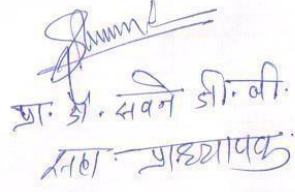 प्रा. डॉ. सवने डी. बी.
सहा. प्राध्यापक